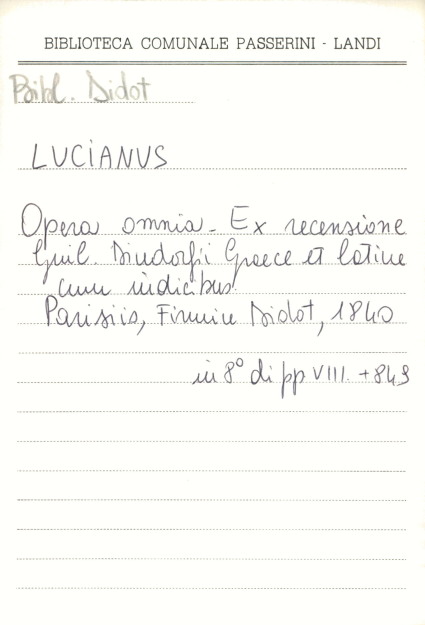 BIBLIOTECA COMUNALE PASSERINI - LANDI
Bibl. Didot
LUCIANUS
Opera omnia - Ex recensione
Guil. Dindorfii Graece et latine
cum indicibus.
Parisiis, Firmin Didot, 1840
in 8° di pp VIII. + 849